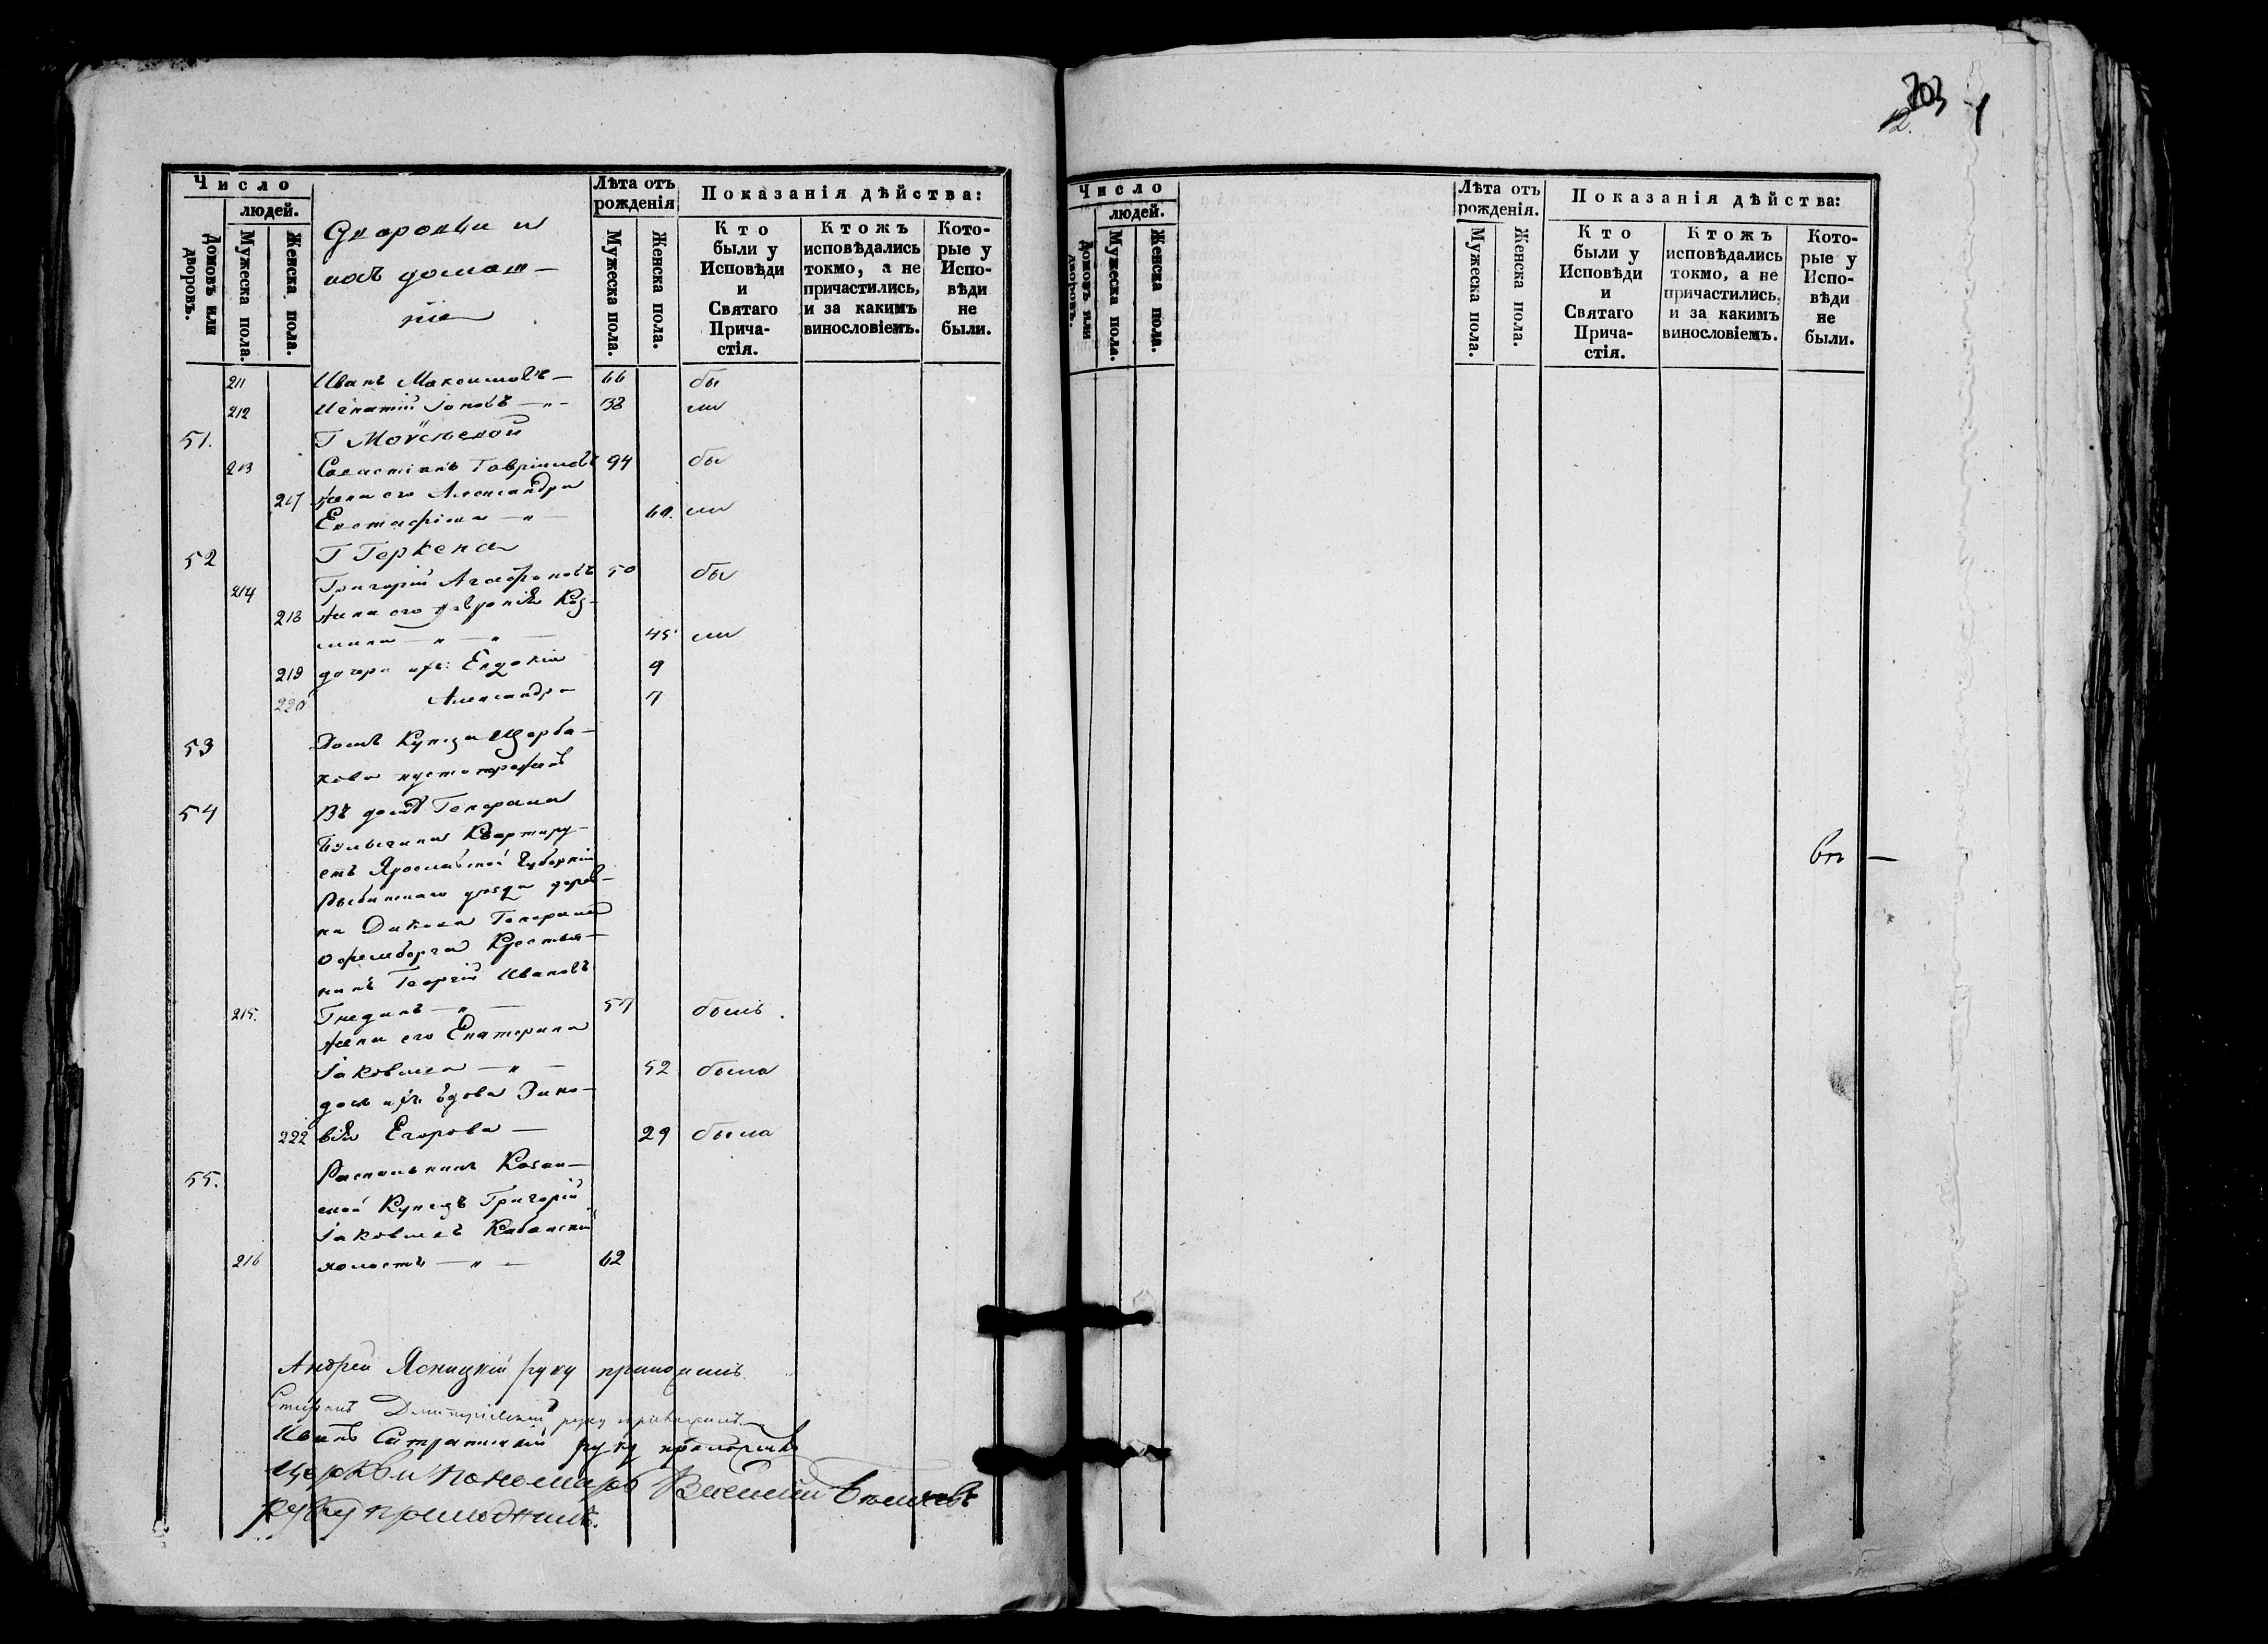 Число
людей.
Домовъ или дворовъ.
Мужеска пола.
Женска пола.
Дворовыи и
ихъ домаш-
ніе
Лѣта отъ рожденія
Мужеска пола.
Женска пола.
Показанія дѣйства:
Кто были у Исповѣди и Святаго Причастія.
Ктожъ исповѣдались токмо, а не причастились, и за какимъ винословіемъ.
Которые у Исповѣди не были.
211 Иванъ Максимовъ — 66 бы
212 Игнатій Іоновъ — " — 38 ли
51. Г
213 Севастіанъ Гавріиловъ 94 бы
217 жена его Александра
Евстафіева — " — 60. ли
52 Г Геркена
214 Григорій Агафоновъ 50 бы
218 жена его Февронія Коз-
мина — " — " — 45 ли
219 дочери ихъ: Евдокія 9
220 Александра 7
53 Домъ Купца Щерба-
кова пустопорожній
54 Въ домѣ Генерала
Булыгина Квартиру-
етъ Ярославской Губерніи
Рыбинскаго уѣзда дерев-
ни Генерала
Крестья-
нинъ Георгій Ивановъ
215. — " — 57 былъ.
жена его Екатерина
Іаковлева — " — 52 была
дочь ихъ вдова Зино-
222 вія Егорова — 29 была
55. Раскольникъ Казан-
ской Купецъ Григорій
Іаковлевъ
216 холостъ — " — 62
Андрей Ясницкій руку приложилъ.
Стефанъ Димитріевскій руку приложилъ.
Иванъ руку приложилъ
Церкви пономарь Василій
руку приложилъ.
203
12.
1
Число
людей.
Домовъ или дворовъ.
Мужеска пола.
Женска пола.
Лѣта отъ рожденія.
Мужеска пола.
Женска пола.
Показанія дѣйства:
Кто были у Исповѣди и Святаго Причастія.
Ктожъ исповѣдались токмо, а не причастились, и за какимъ винословіемъ.
Которые у Исповѣди не были.